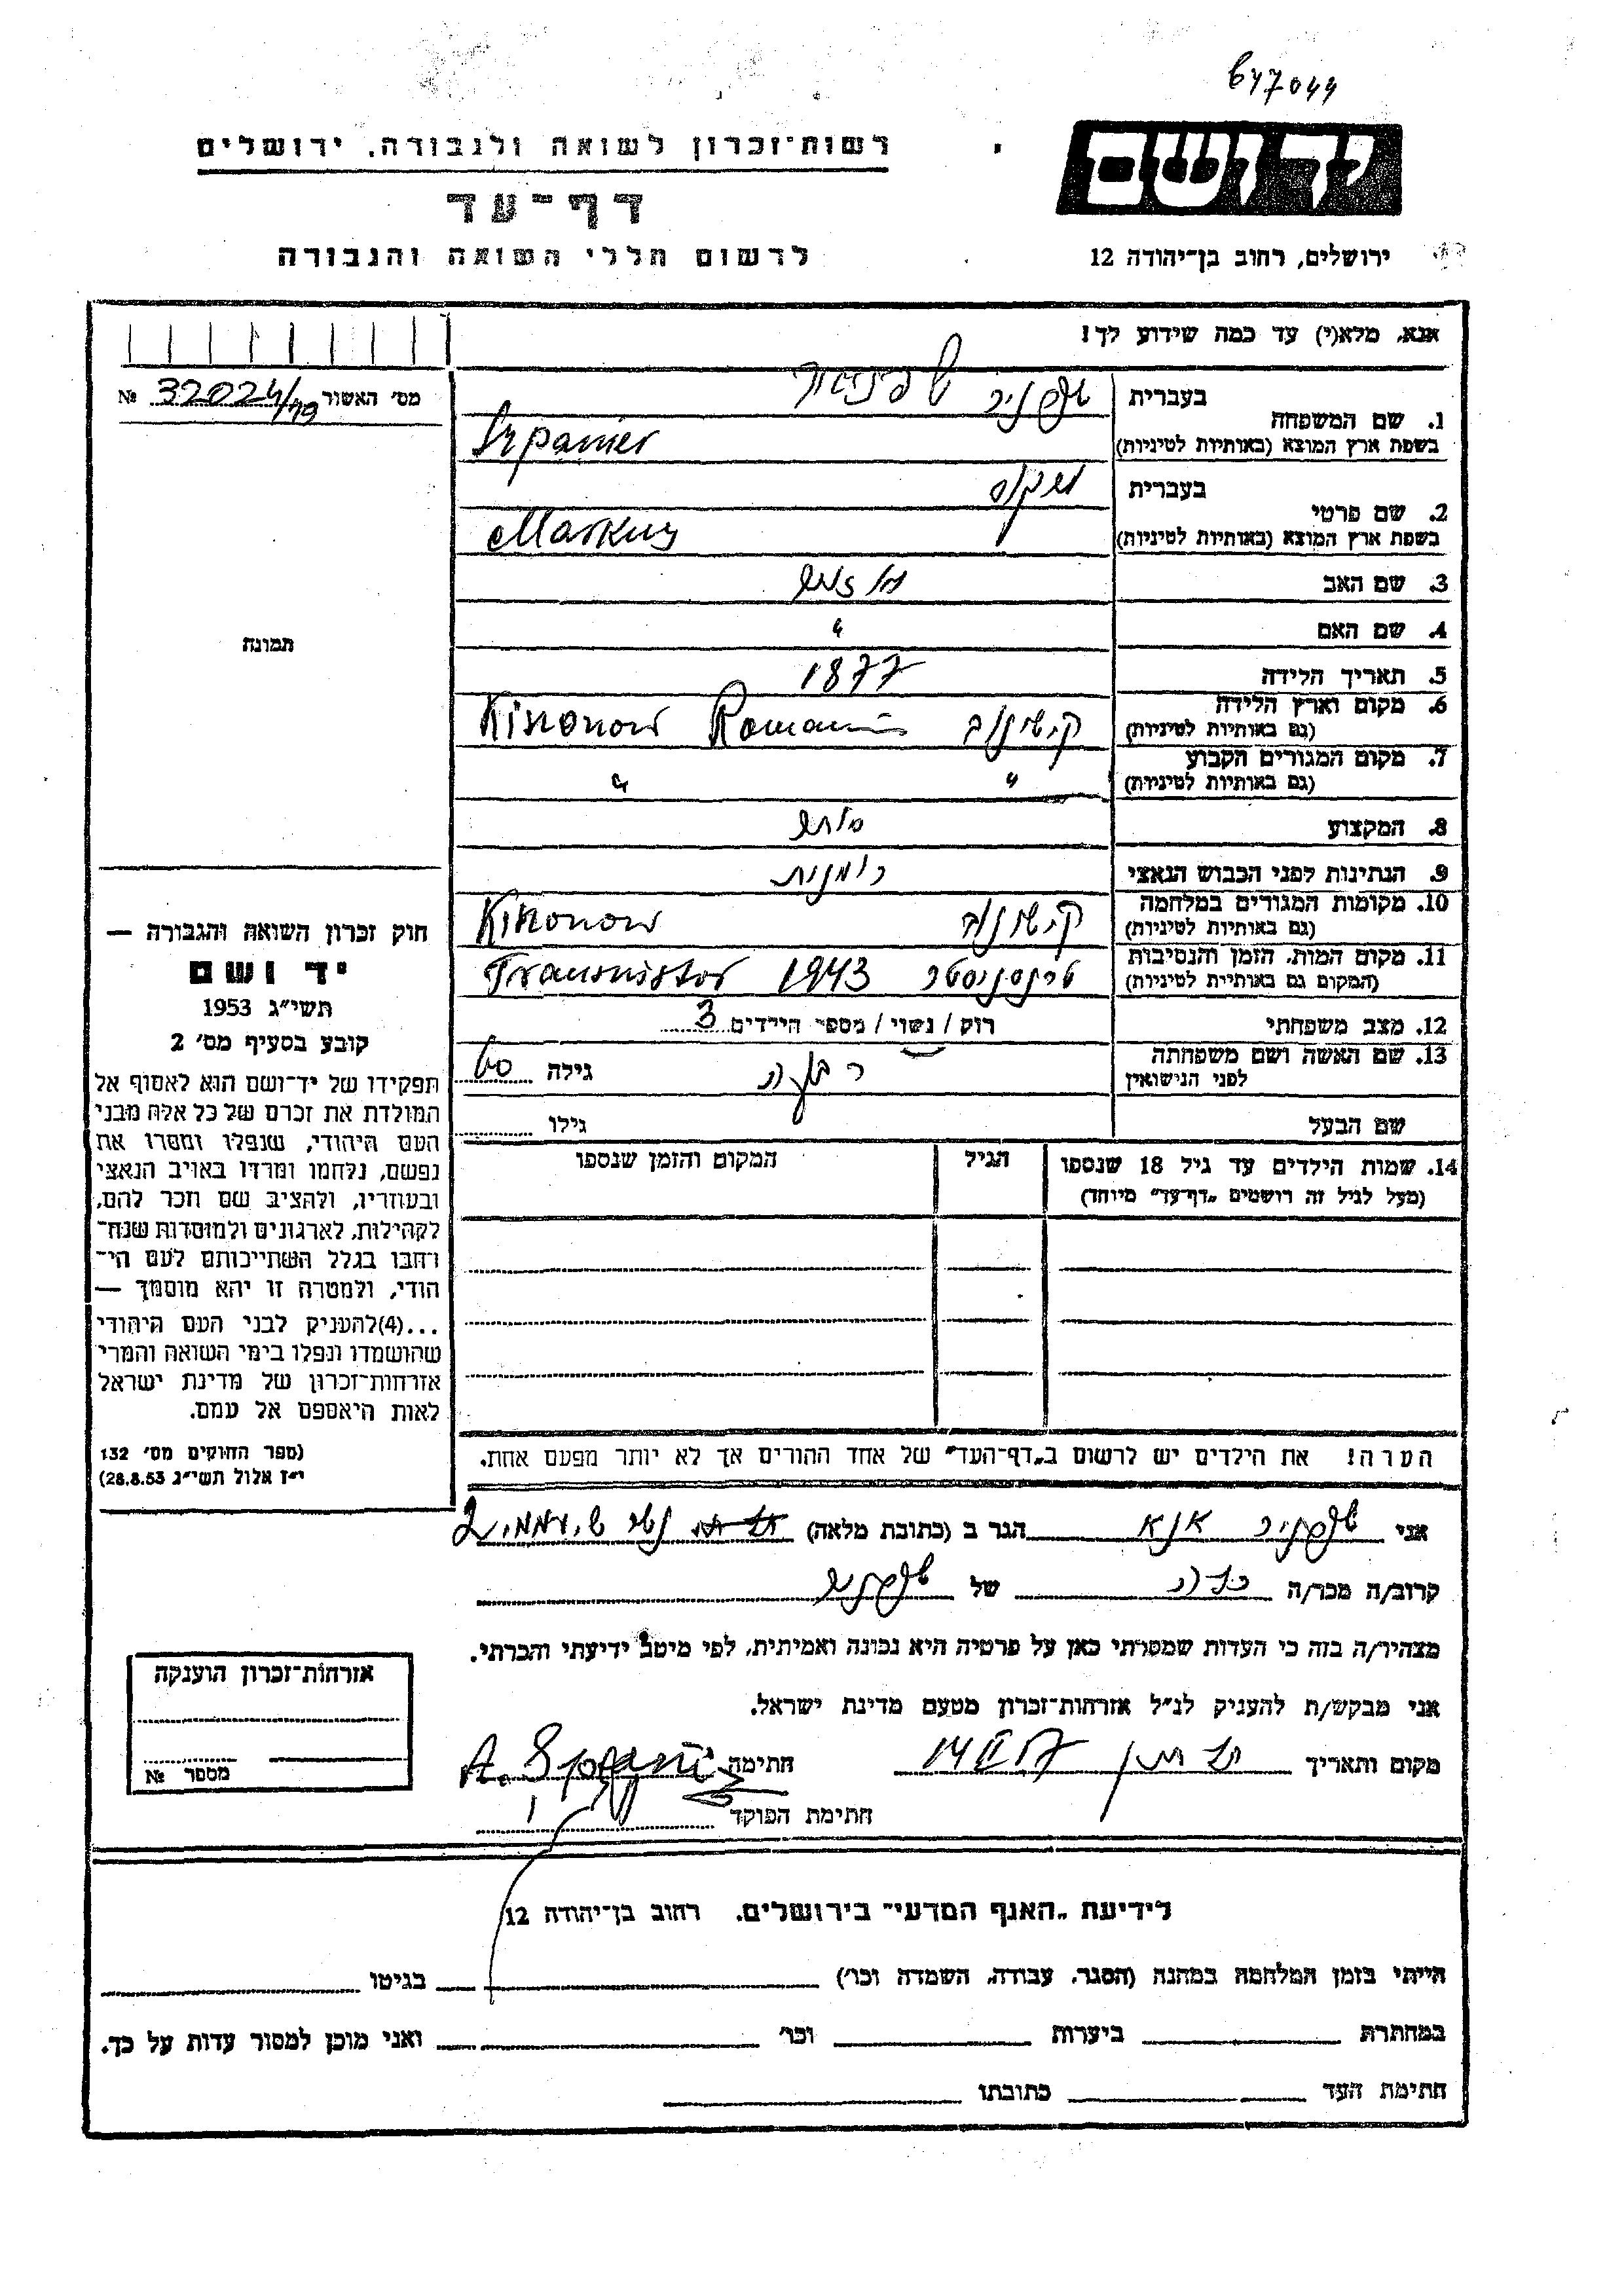 647044
רשות־זכרון לשואה ולגבורה, ירושלים
יד ושם
דף־עד
לרשום חללי השואה והגבורה
ירושלים, רחוב בן־יהודה 12
אנא, מלא(י) עד כמה שידוע לך!
מס' האשור № 32024/
1. שם המשפחה
בעברית
בשפת ארץ המוצא (באותיות לטיניות) Szpanier
2. שם פרטי
בעברית מרקוס
בשפת ארץ המוצא (באותיות לטיניות) Markus
3. שם האב
4. שם האם "
5. תאריך הלידה 1877
6. מקום וארץ הלידה
(גם באותיות לטיניות) קישינוב Kisnonow
7. מקום המגורים הקבוע
(גם באותיות לטיניות) " "
8. המקצוע סוחר
9. הנתינות לפני הכבוש הנאצי רומנית
10. מקומות המגורים במלחמה
(גם באותיות לטיניות) קישינוב Kisnonow
11. מקום המות, הזמן והנסיבות
(המקום גם באותיות לטיניות) טרנסניסטר 1943 Transnistor
12. מצב משפחתי רוק / נשוי / מספר הילדים 3
13. שם האשה ושם משפחתה
לפני הנישואין גילה 60
שם הבעל גילו
14. שמות הילדים עד גיל 18 שנספו
(מעל לגיל זה רושמים "דף־עד" מיוחד)
הגיל
המקום והזמן שנספו
הערה! את הילדים יש לרשום ב"דף־העד" של אחד ההורים אך לא יותר מפעם אחת.
תמונה
חוק זכרון השואה והגבורה —
יד ושם
תשי"ג 1953
קובע בסעיף מס' 2
תפקידו של יד־ושם הוא לאסוף אל
המולדת את זכרם של כל אלה מבני
העם היהודי, שנפלו ומסרו את
נפשם, נלחמו ומרדו באויב הנאצי
ובעוזריו, ולהציב שם וזכר להם,
לקהילות, לארגונים ולמוסדות שנח־
רבו בגלל השתייכותם לעם הי־
הודי, ולמטרה זו יהא מוסמך —
...(4)להעניק לבני העם היהודי
שהושמדו ונפלו בימי השואה והמרי
אזרחות־זכרון של מדינת ישראל
לאות היאספם אל עמם.
(ספר החוקים מס' 132
י"ז אלול תשי"ג 28.8.53)
אני שפניר אנא הגר ב (כתובת מלאה)
קרוב/ה מכר/ה כלה של
מצהיר/ה בזה כי העדות שמסרתי כאן על פרטיה היא נכונה ואמיתית, לפי מיטב ידיעתי והכרתי.
אני מבקש/ת להעניק לנ"ל אזרחות־זכרון מטעם מדינת ישראל.
מקום ותאריך 14 II 57 חתימה
חתימת הפוקד
אזרחות־זכרון הוענקה
מספר №
לידיעת "האגף המדעי" בירושלים, רחוב בן־יהודה 12
הייתי בזמן המלחמה במחנה (הסגר, עבודה, השמדה וכו') בגיטו
במחתרת ביערות וכו' ואני מוכן למסור עדות על כך.
חתימת העד כתובתו